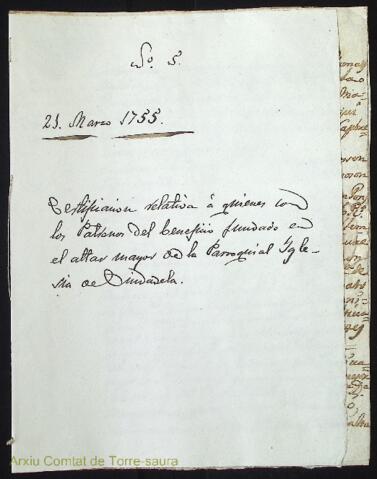 Nº. 5.
21. Marzo 1755.
Certificacion relativa á quienes son
los Patronos del beneficio fundado en
el altar mayor de la Parroquial Ygle-
sia de Ciudadela.
Arxiu Comtat de Torre-saura